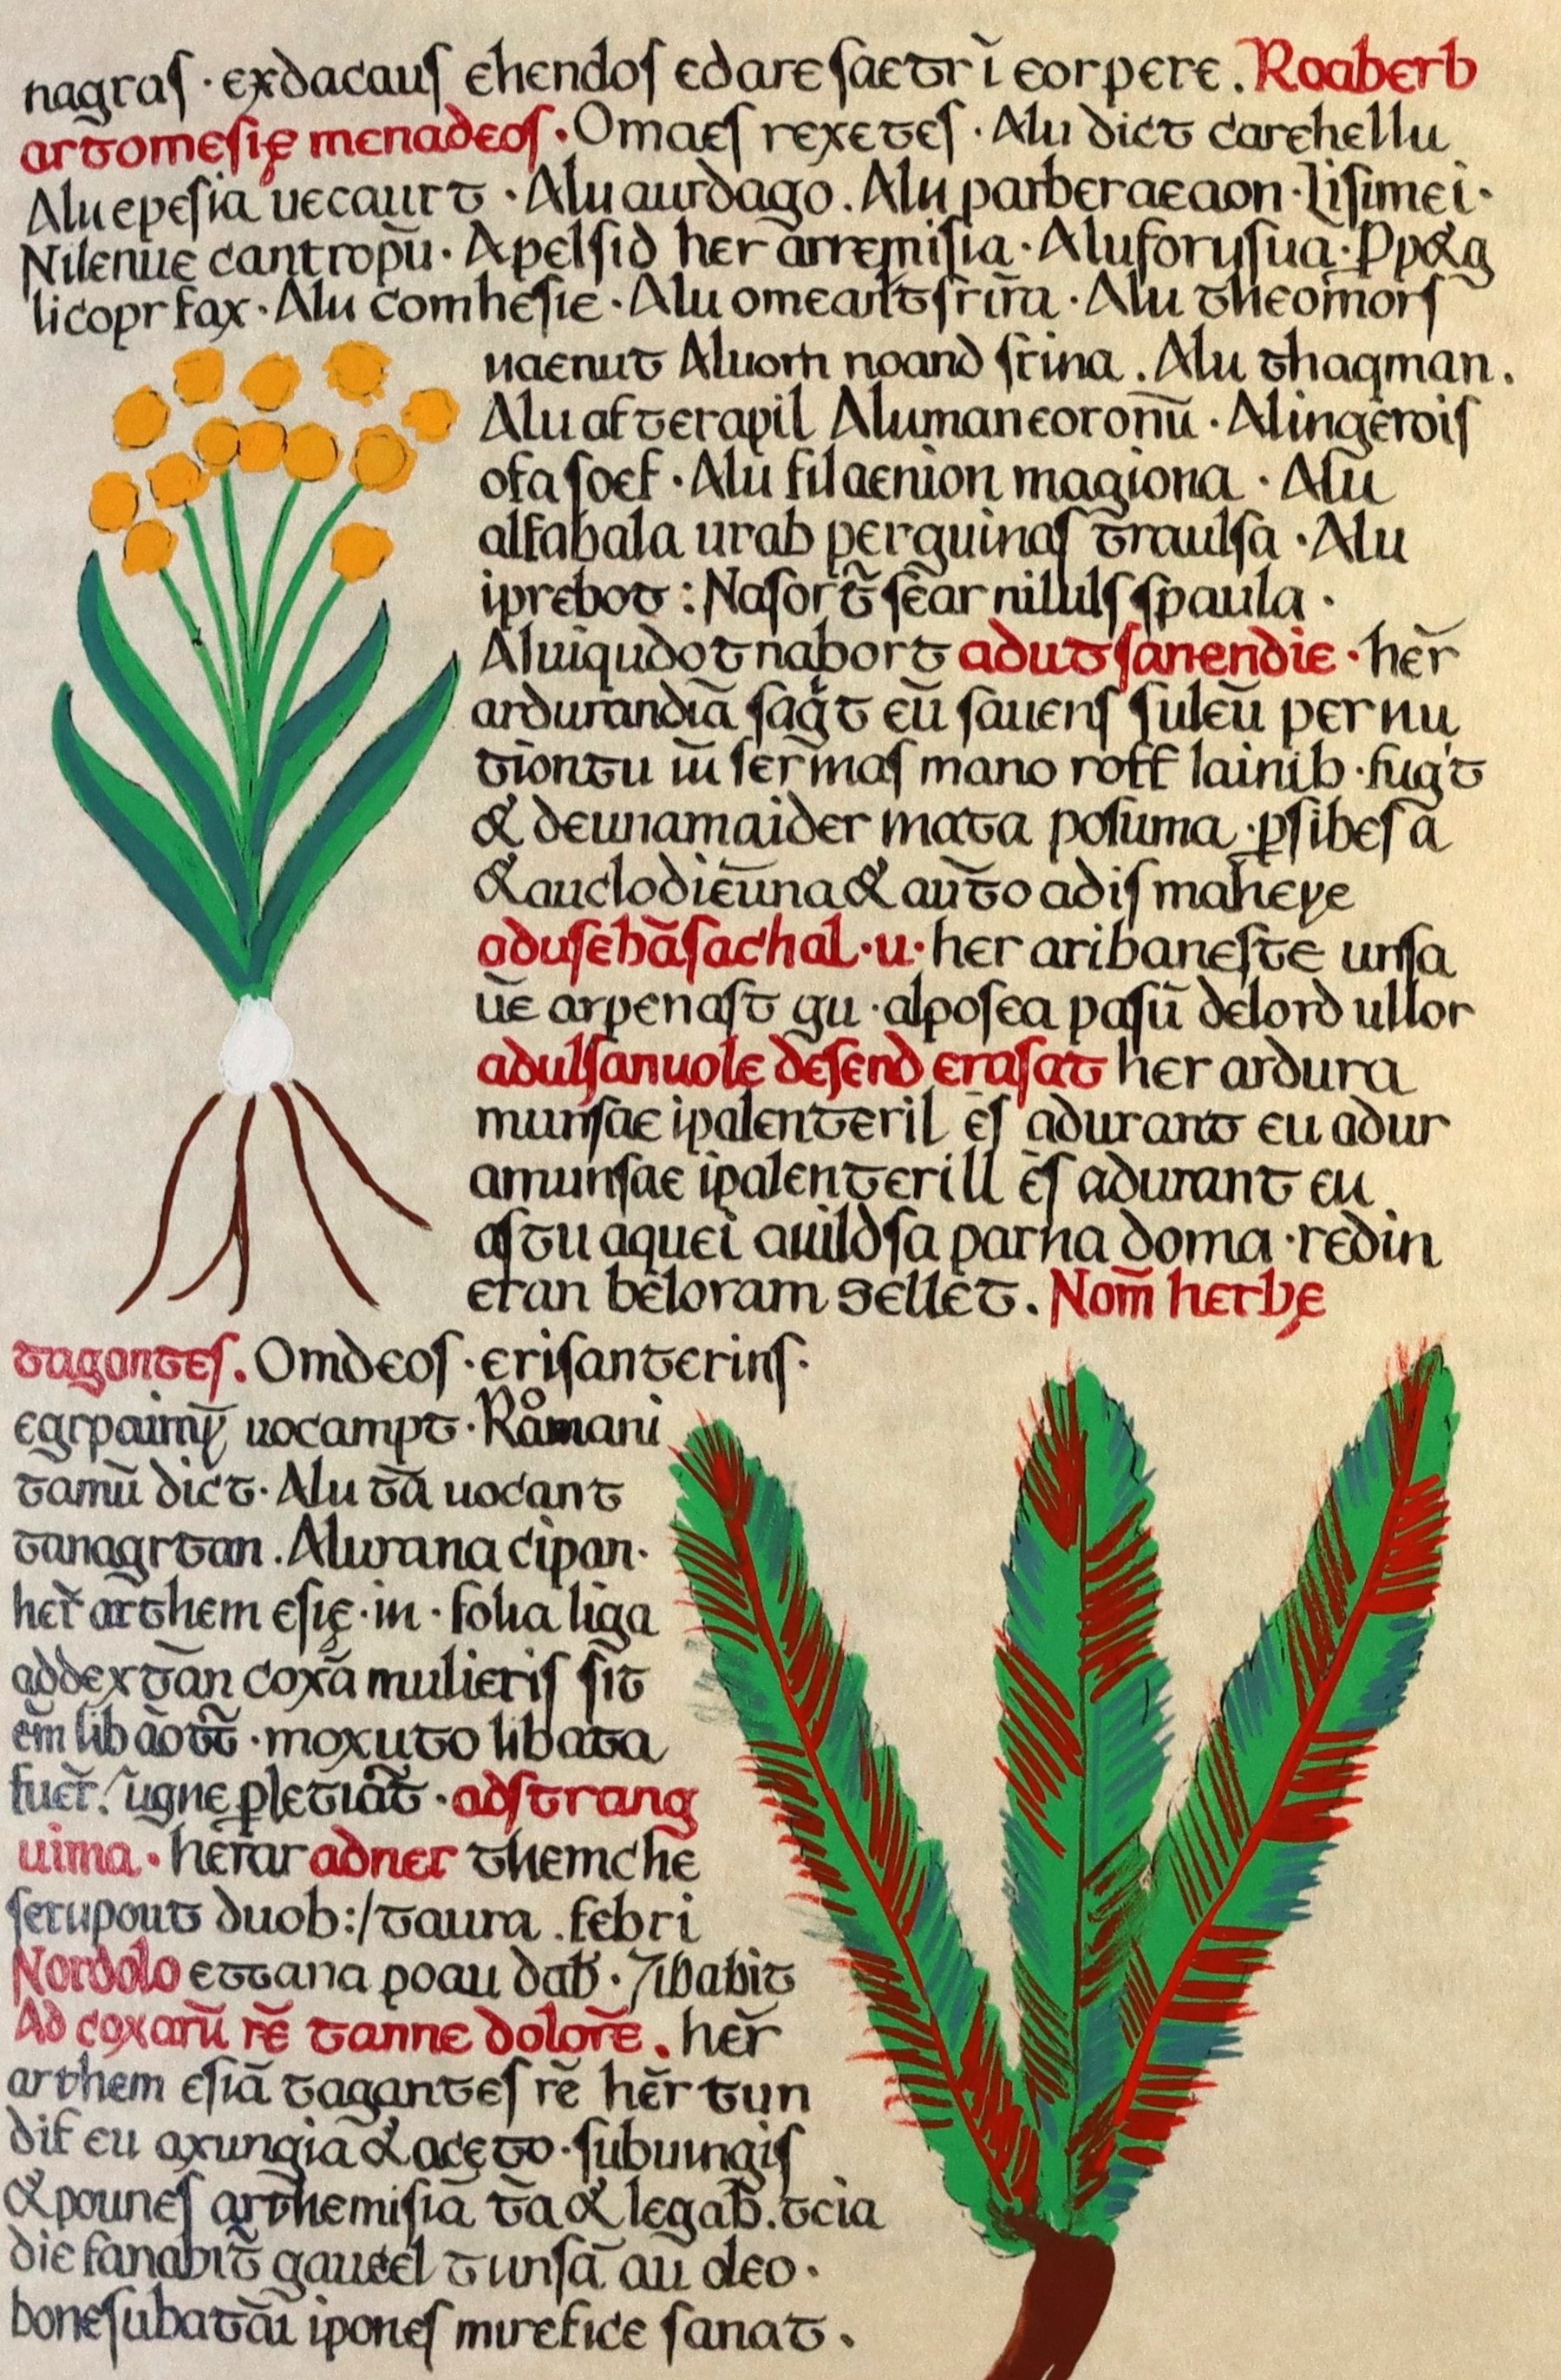 nagras · exdacaus ehendos edare saetrī eorpere. Roaberb
artomesię menadeos. Omaes rexetes · Alu dict carehellu
Alu epesia uecaurt · Alu aurdago. Alu parberaeaon · Lisimei ·
Nilenue cantropū · Apelsid her arremisia · Aluforysua · Pp&g
licopr fax · Alu comhesie · Alu omeantsrir̄a · Alu theom̄ors
uaenut Aluorn noand srina. Alu thaqman.
Alu afterapil Alumaneoronū · Alingerois
ofa soef · Alu filaenion magiona · Alu
alfabala urab perguinas traulsa · Alu
iprebot : Nasort̄ sēar nilulsspaula ·
Aluiqudotnabort adutsanendie · her̄
ardurandiā sag̃t eū sauens suleū per nu
tiontu iū ser̄mas mano roff lainib · fug't
& deunamaider mata posuma · p̱sibes ā
& auclodieūna & aūto adis maheye
adusebāsachal · u · her aribaneste unsa
ūe arpenast gu · alposea pasū delord ullor
adulsanuole desend erasat her ardura
munsae ipalenteril ēs adurant eu adur
amunsae ipalenterill ēs adurant eu
astu aquei auildsa parna doma · redin
eran beloram sellet. Nom̄ herbę
tagantes. Omdeos · erisanterins ·
egrpaimy̅ uocampt · Råmani
tamū dict · Alu tā uocant
tanagrtan. Alurana cipan ·
her̄ ar̄them esię · in · folia liga
addextān coxā mulieris sit
ēm lib āott̄ · moxuto libata
fuer̄. ūgne p̱letiat̄ · adstrang
uima · her̄ar adner themche
serupout duob:/ taura . febri
Nordolo ettana poau dab̄ · 7ibabit
Ad coxarū rē tanne dolorē. her̄
arthem esiā tagantes rē her̄ tun
dit eu axungia & aceto · subuingis
& pounes arthemisiā tā & legab̄. tcia
die fanabit̄ gaucel tunsā aū deo ·
bonesubatāi ipones mirefice sanat.